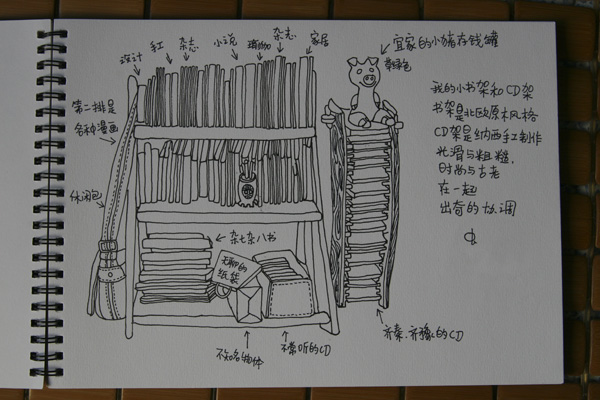 设计
手工
杂志
小说
购物
杂志
家居
宜家的小猪存钱罐
草绿色
第二排是
各种漫画
休闲包
我的小书架和CD架
书架是北欧原木风格
CD架是纳西手工制作
光滑与粗糙,
时尚与古老
在一起
出奇的协调
杂七杂八书
无聊的
纸袋
不知名物体
不常听的CD
齐秦.齐豫的CD